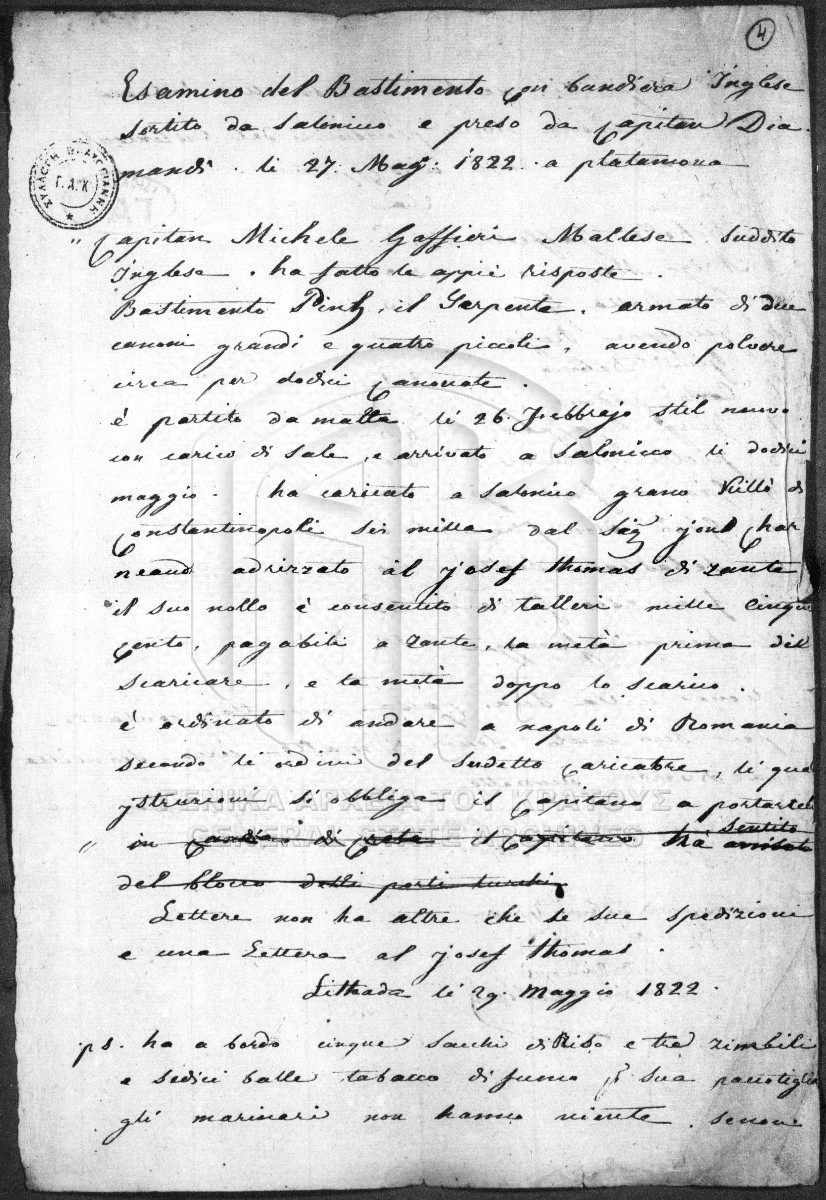 4
Esamino del Bastimento con bandiera Inglese
sortito da Salonicco e preso da Capitan Dia
mandi . li 27. Mag: 1822 . a platamona
ΣΥΛΛΟΓΗ ΒΛΑΧΟΓΙΑΝΝΗ
Γ.Α.Κ
" Capitan Michele Gaffieri Maltese suddito
Inglese . ha fatto le appiè risposte .
Bastimento Pink, il Serpente . armato di due
canoni grandi e quatro piccoli, avendo polvere
circa per dodici Canonate .
è partito da malta li 26. Febbrajo stil nuovo
con carico di Sale, e arrivato a Salonicco li dodici
maggio . ha caricato a Salonico grano Killò di
Constantinopoli sei milla dal Sig jouL Char
neaud adrizzato al josef thomas di Zante
il suo nollo è consentito di talleri mille Cinque
Cento, pagabili a Zante, la metà prima del
scaricare, e la metà doppo lo scarico .
è ordinato di andare a napoli di Romania
secondo li ordini del sudetto Caricatore, li qua
ystruzioni si obbliga il Capitano a portarle
sentito
" in Candia di Creta il Capitano ha avvisato
del blocco delli porti turchi,
Lettere non ha altre che le sue spedizioni
e una Lettera al josef thomas .
Lithada li 29. Maggio 1822 .
ps. ha a bordo cinque sacchi di Riso e tre zimbili
e sedici balle tabacco di fumo p sua paccotiglia
gli marinari non hanno niente . senon
ΓΕΝΙΚΑ ΑΡΧΕΙΑ ΤΟΥ ΚΡΑΤΟΥΣ
GENERAL STATE ARCHIVES